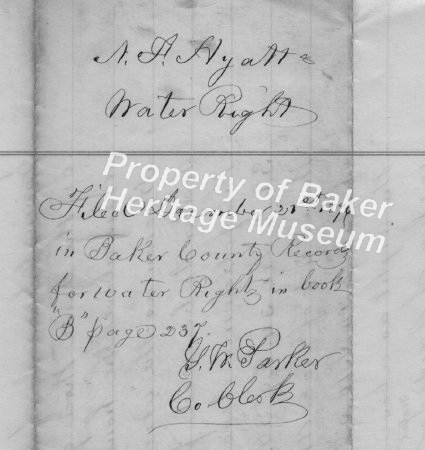 N. A. Hyatt
Water Right
Property of Baker
Heritage Museum
Filed
in Baker County Records
for water Rights in book
"B" page 237.
Parker
Co Clerk